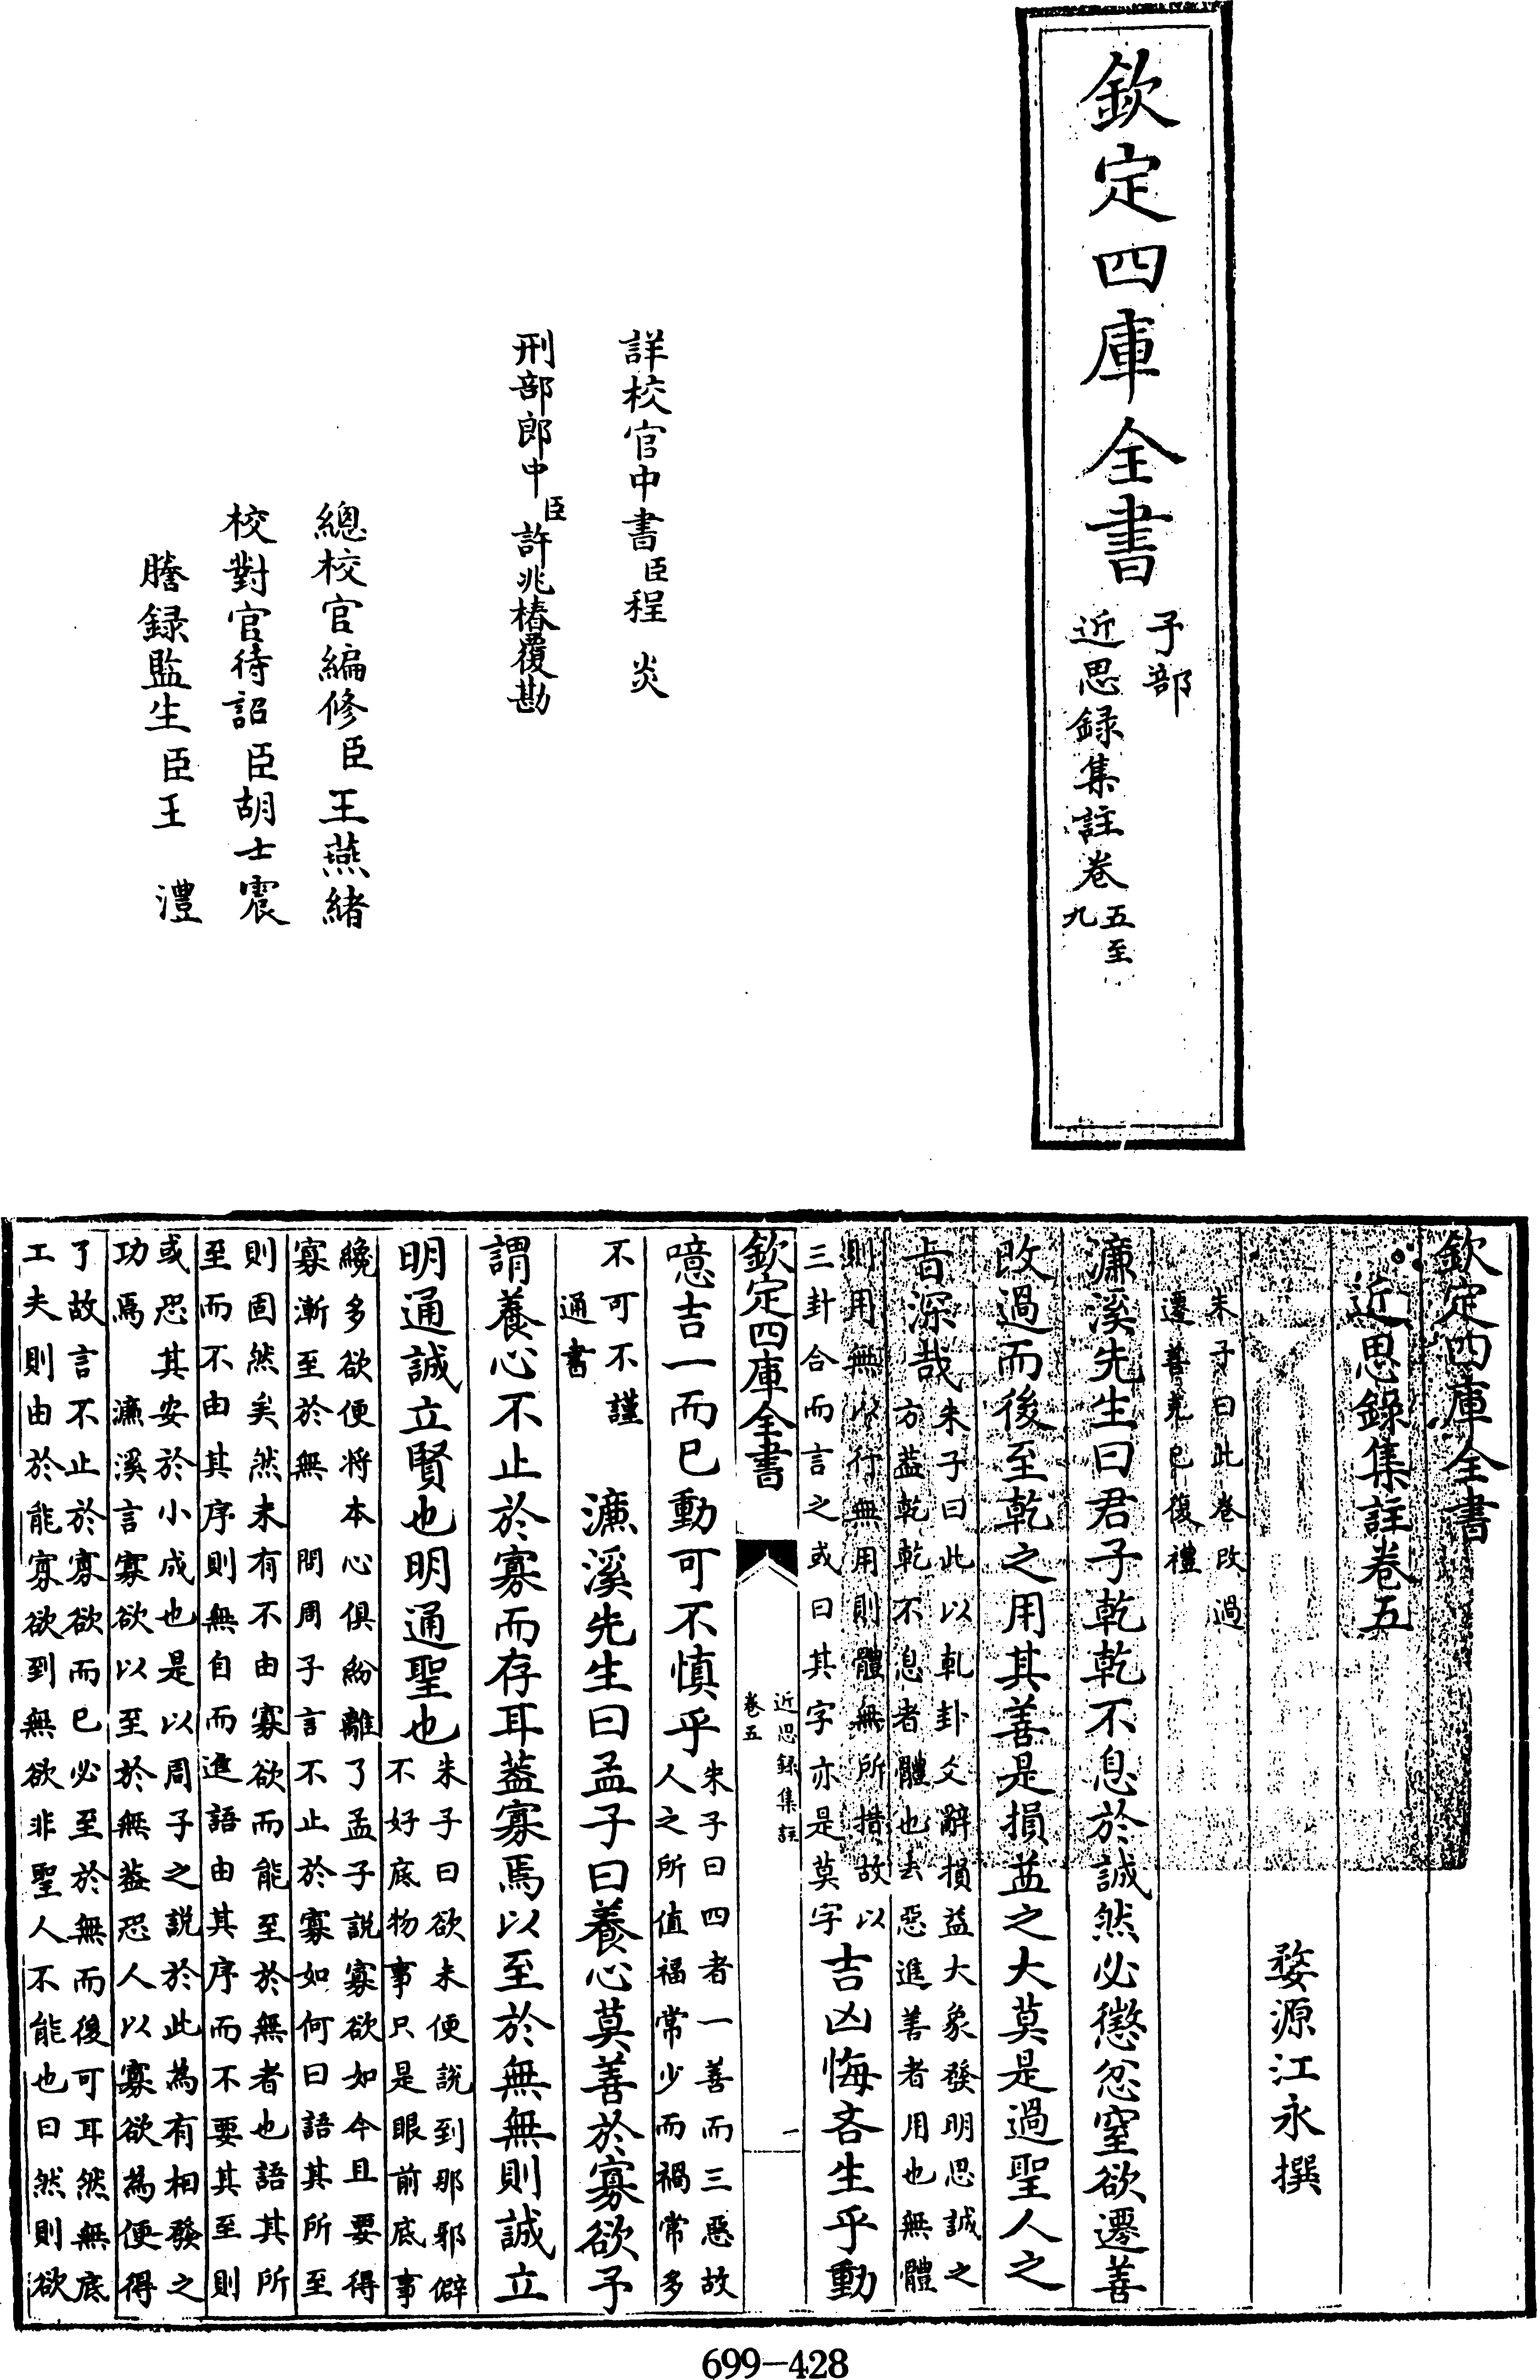 欽定四庫全書
子部
近思録集註卷五至九
詳校官中書臣程炎
刑部郎中臣許兆椿覆勘
總校官編修臣王燕緒
校對官待詔臣胡士震
謄録監生臣王澧
欽定四庫全書
近思錄集註卷五
婺源江永撰
朱子曰此卷改過
遷善克己復禮
濂溪先生曰君子乾乾不息於誠然必懲忿窒欲遷善
改過而後至乾之用其善是損益之大莫是過聖人之
旨深哉
朱子曰此以乾卦爻辭損益大象發明思誠之
方葢乾乾不息者體也去惡進善者用也無體
則用無以行無用則體無所措故以
三卦合而言之或曰其字亦是莫字
吉凶悔吝生乎動
欽定四庫全書
近思録集註
卷五
一
噫吉一而已動可不慎乎
朱子曰四者一善而三惡故
人之所值福常少而禍常多
不可不謹
通書
濂溪先生曰孟子曰養心莫善於寡欲予
謂養心不止於寡而存耳葢寡焉以至於無無則誠立
明通誠立賢也明通聖也
朱子曰欲未便說到那邪僻
不好底物事只是眼前底事
纔多欲便將本心俱紛離了孟子說寡欲如今且要得
寡漸至於無　問周子言不止於寡如何曰語其所至
則固然矣然未有不由寡欲而能至於無者也語其所
至而不由其序則無自而進語由其序而不要其至則
或恐其安於小成也是以周子之說於此為有相發之
功焉　濂溪言寡欲以至於無葢恐人以寡欲為便得
了故言不止於寡欲而已必至於無而後可耳然無底
工夫則由於能寡欲到無欲非聖人不能也曰然則欲
699-428